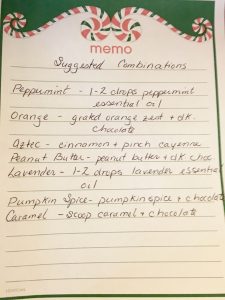 memo
Suggested Combinations
Peppermint - 1-2 drops peppermint
essential oil
Orange - grated orange zest + dk.
chocolate
Aztec - cinnamon + pinch cayenne
Peanut Butter - peanut butter + dk choc
Lavender - 1-2 drops lavender essential
oil
Pumpkin Spice - pumpkin spice + chocolate
Caramel - scoop caramel + chocolate